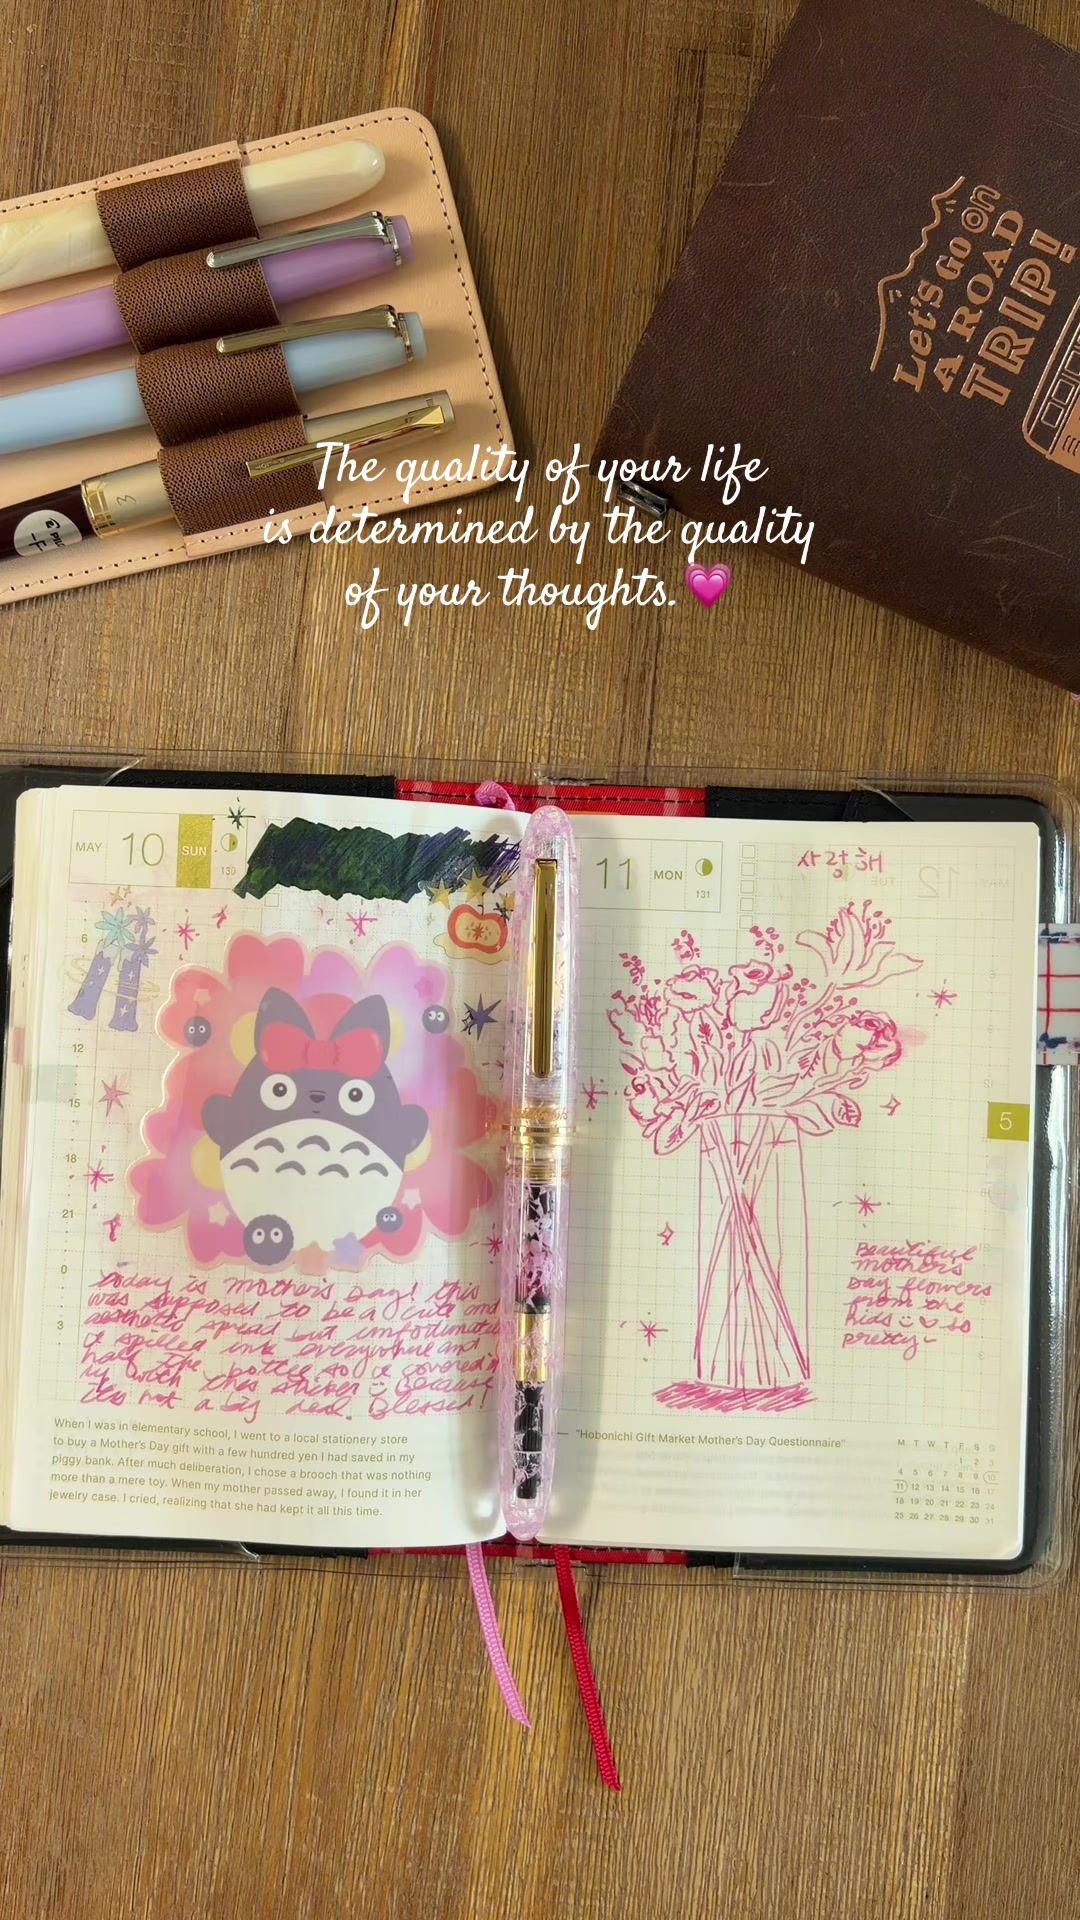 Let's Go on
A ROAD
TRIP!
3
PILOT
-F-
The quality of your life
is determined by the quality
of your thoughts.💗
MAY 10 SUN
130
6
12
15
18
21
0
3
today is mother's Day! this
was supposed to be a cute and
aesthetic spread but unfortunately
I spilled ink everywhere and
half the bottle so I covered it
up with this sticker :) Because
it's not a big deal. Blessed!
When I was in elementary school, I went to a local stationery store
to buy a Mother's Day gift with a few hundred yen I had saved in my
piggy bank. After much deliberation, I chose a brooch that was nothing
more than a mere toy. When my mother passed away, I found it in her
jewelry case. I cried, realizing that she had kept it all this time.
11 MON
131
사랑해
5
Beautiful
mother's
Day flowers
from the
kids :) ♡ so
pretty~
— "Hobonichi Gift Market Mother's Day Questionnaire"
M T W T F S S
1 2 3
4 5 6 7 8 9 10
11 12 13 14 15 16 17
18 19 20 21 22 23 24
25 26 27 28 29 30 31